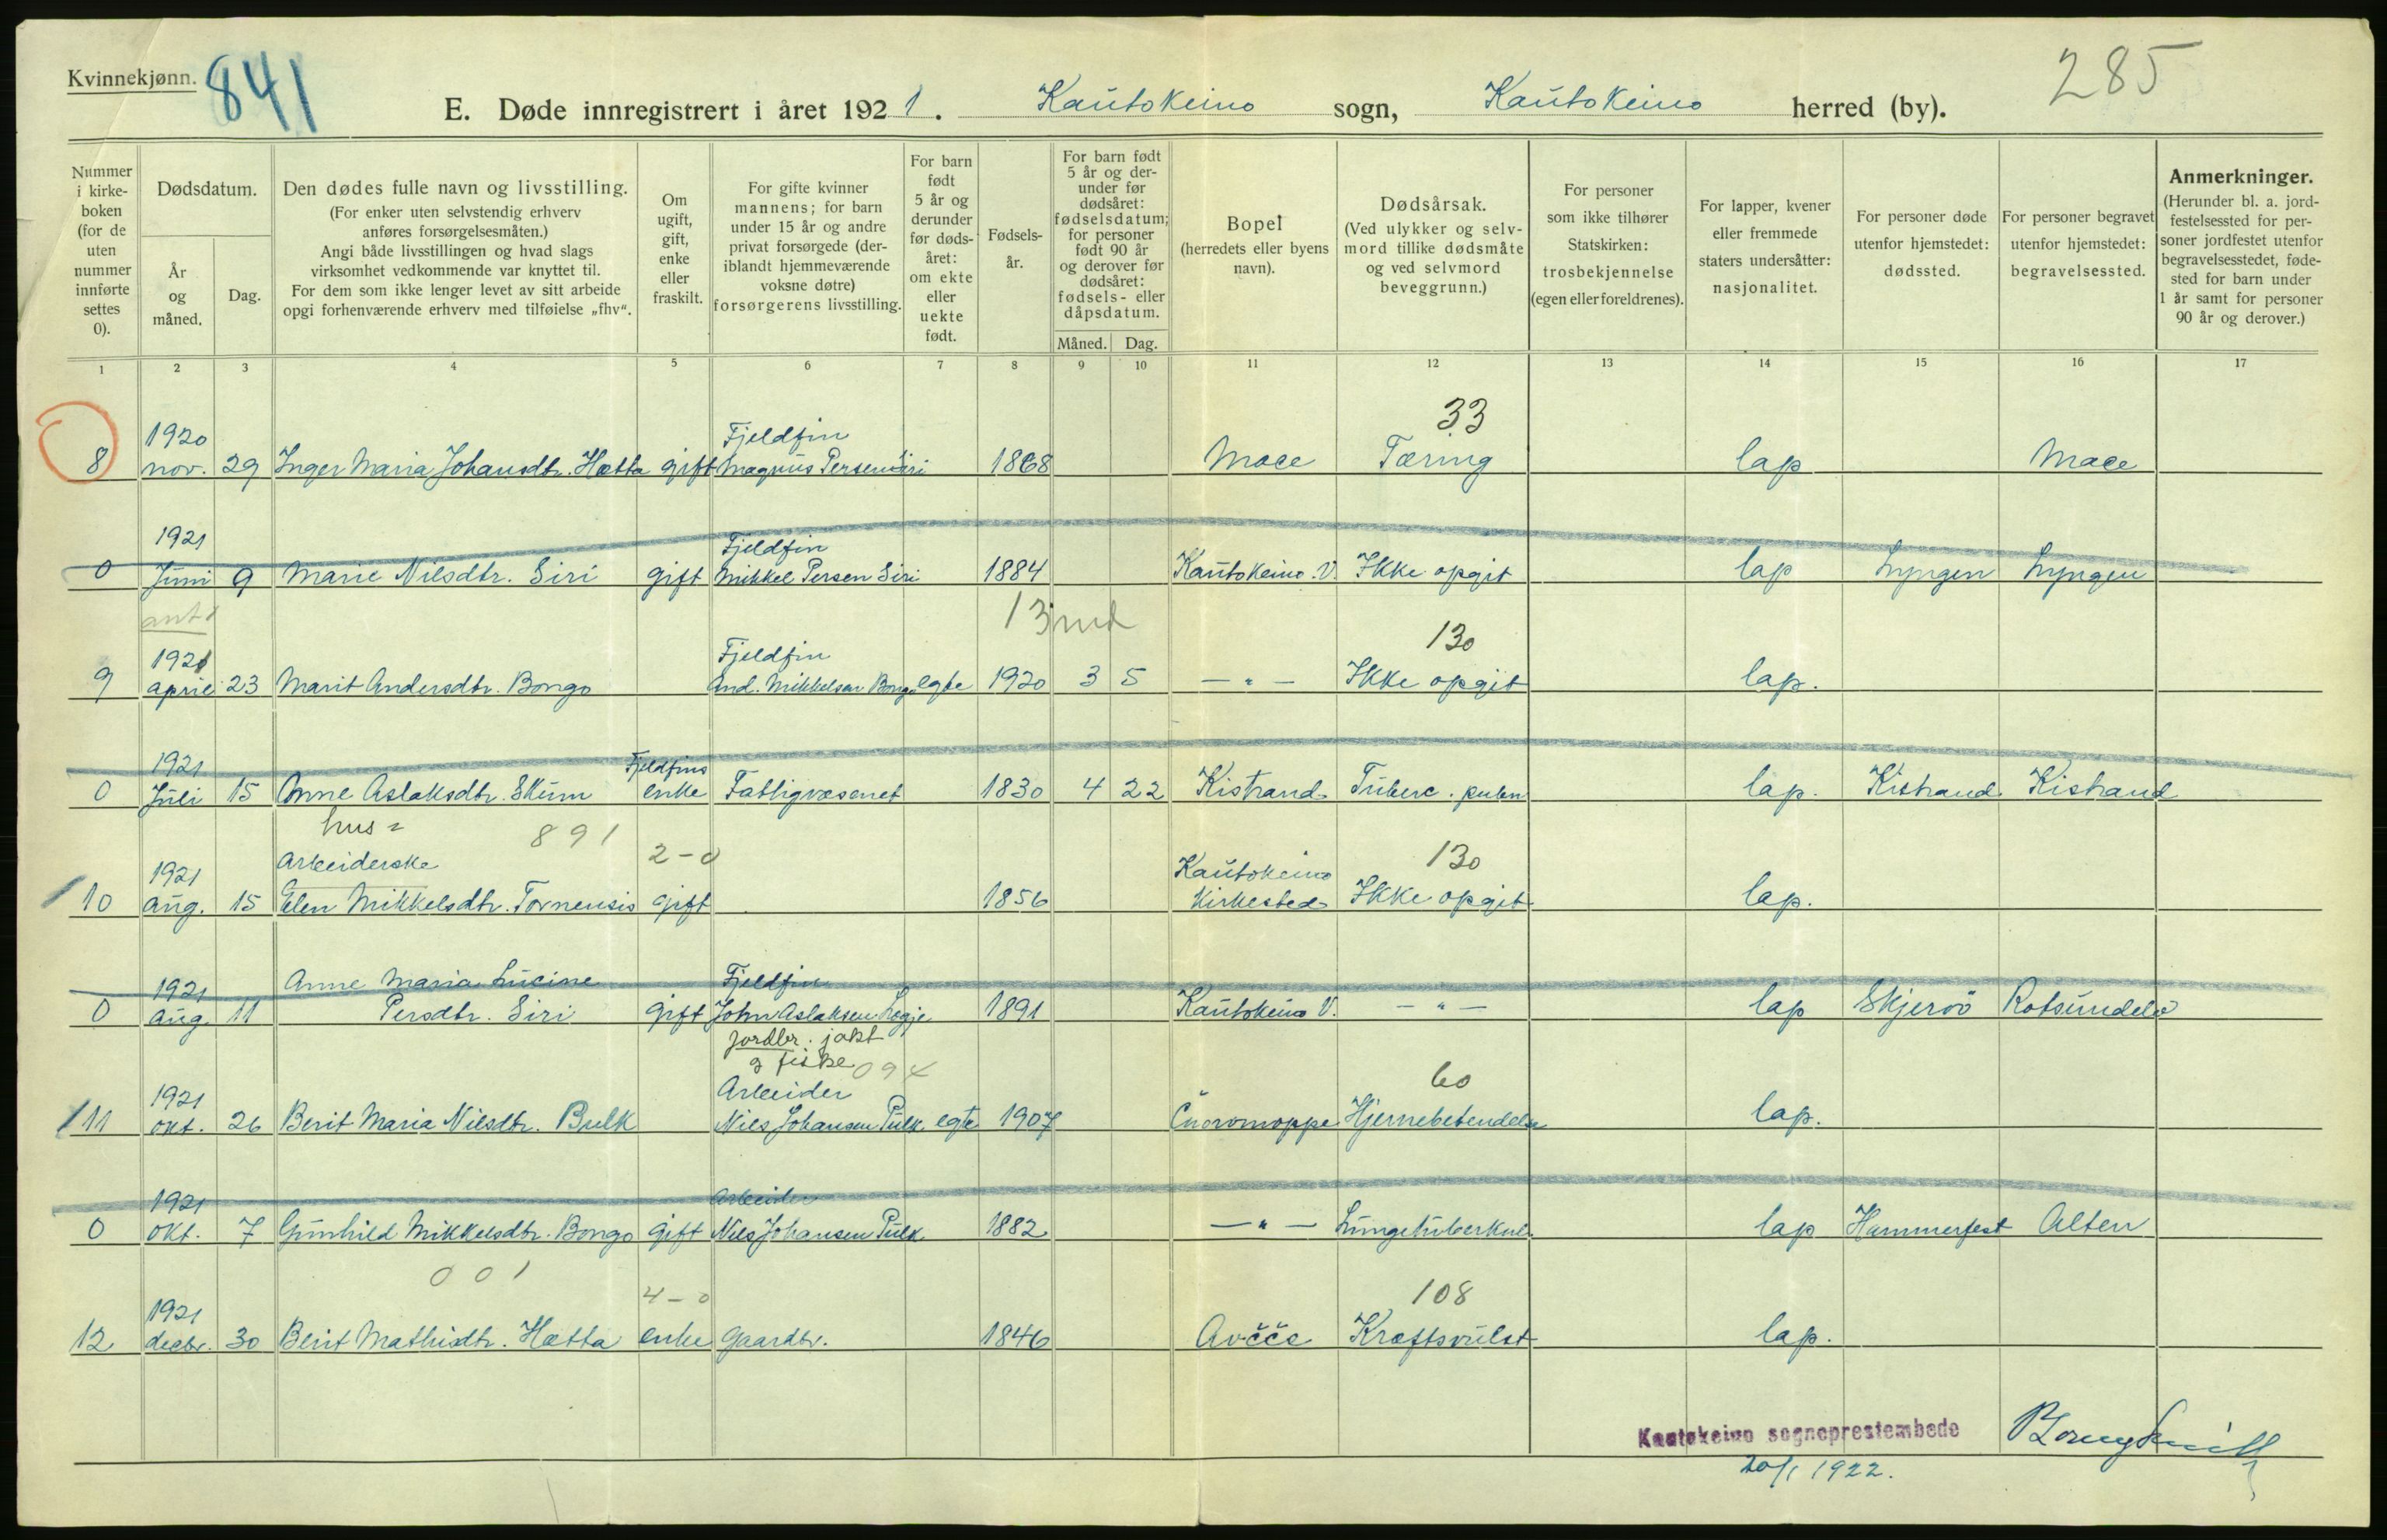 Kvinnekjønn.
841
285
E. Døde innregistrert i året 1921. Kautokeino sogn, Kautokeino herred (by).
Nummer i kirkeboken (for de uten nummer innførte settes 0).
Dødsdatum.
År og måned.
Dag.
Den dødes fulle navn og livsstilling.
(For enker uten selvstendig erhverv anføres forsørgelsesmåten.)
Angi både livsstillingen og hvad slags virksomhet vedkommende var knyttet til.
For dem som ikke lenger levet av sitt arbeide opgi forhenværende erhverv med tilføielse „fhv“.
Om ugift, gift, enke eller fraskilt.
For gifte kvinner mannens; for barn under 15 år og andre privat forsørgede (deriblandt hjemmeværende voksne døtre) forsørgerens livsstilling.
For barn født 5 år og derunder før dødsåret: om ekte eller uekte født.
Fødselsår.
For barn født 5 år og derunder før dødsåret: fødselsdatum; for personer født 90 år og derover før dødsåret: fødsels- eller dåpsdatum.
Måned. Dag.
Bopel (herredets eller byens navn).
Dødsårsak.
(Ved ulykker og selvmord tillike dødsmåte og ved selvmord beveggrunn.)
For personer som ikke tilhører Statskirken: trosbekjennelse (egen eller foreldrenes).
For lapper, kvener eller fremmede staters undersåtter: nasjonalitet.
For personer døde utenfor hjemstedet: dødssted.
For personer begravet utenfor hjemstedet: begravelsessted.
Anmerkninger.
(Herunder bl. a. jordfestelsessted for personer jordfestet utenfor begravelsesstedet, fødested for barn under 1 år samt for personer 90 år og derover.)
1 2 3 4 5 6 7 8 9 10 11 12 13 14 15 16 17
33
1920 Fjeldfin
8 nov. 29 Inger Maria Johansdtr. Hætta gift Magnus Persen Siri 1868 Mace Tæring lap Mace
1921 Fjeldfin
0 Juni 9 Marie Nilsdtr. Siri gift Mikkel Persen Siri 1884 Kautokeino V. Ikke opgit lap Lyngen Lyngen
13 md
130
1921 Fjeldfin
9 april 23 Marit Andersdtr. Bongo And. Mikkelsen Bongo egte 1920 3 5 — " — Ikke opgit lap.
1921 Fjeldfins
0 Juli 15 Anne Aslaksdtr. Skum enke Fattigvæsenet 1830 4 22 Kistrand Tuberc. pulm lap. Kistrand Kistrand
hus= 891 2-0 130
1921 Arbeiderske Kautokeino
10 aug. 15 Elen Mikkelsdtr. Tornensis gift 1856 Kirkested Ikke opgit lap.
1921 Anne Maria Lucine Fjeldfin
0 aug. 11 Persdtr. Siri gift John Aslaksen Logje 1891 Kautokeino V. — " — lap Skjervö Rotsundelv
jordbr. jakt
g fiske 094 60
1921 Arbeider
11 okt. 26 Berit Maria Nilsdtr. Bulk Nils Johansen Pulk egte 1907 Čuovomoppe Hjernebetendelse lap.
1921 Arbeider
0 okt. 7 Gunhild Mikkelsdtr. Bongo gift Nils Johansen Pulk 1882 — " — Lungetuberkul. lap Hammerfest Alten
001 4-0 108
1921
12 decbr. 30 Berit Mathisdtr. Hætta enke Gaardbr. 1846 Avčče Kræftsvulst lap.
Kautokeino sogneprestembede
20/1 1922.